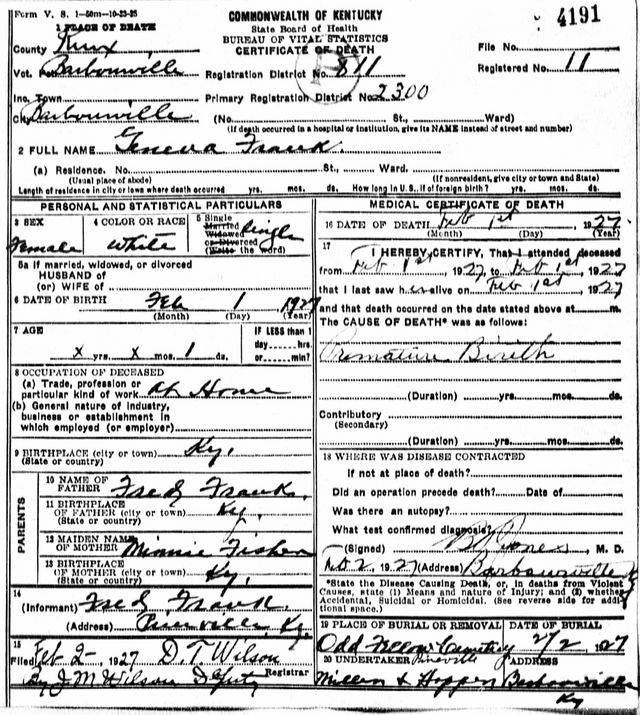 Form V. S. 1-50m-10-23-25
COMMONWEALTH OF KENTUCKY
State Board of Health
BUREAU OF VITAL STATISTICS
CERTIFICATE OF DEATH
4191
1 PLACE OF DEATH
County Knox
File No.
Vot. Barbourville
Registration District No. 811
Registered No. 11
Inc. Town
Primary Registration District No. 2300
City Barbourville (No. St., Ward)
(If death occurred in a hospital or institution, give its NAME instead of street and number)
2 FULL NAME Geneva Frank.
(a) Residence. No. St., Ward.
(Usual place of abode) (If nonresident, give city or town and State)
Length of residence in city or town where death occurred yrs. mos. ds. How long in U.S., if of foreign birth? yrs. mos. ds.
PERSONAL AND STATISTICAL PARTICULARS
3 SEX Female
4 COLOR OR RACE White
5 Single Married Widowed or Divorced (Write the word) Single
5a If married, widowed, or divorced
HUSBAND of
(or) WIFE of
6 DATE OF BIRTH Feb 1 1927
(Month) (Day) (Year)
7 AGE
IF LESS than 1
x yrs. x mos. 1 ds.
day hrs.
or min?
8 OCCUPATION OF DECEASED
(a) Trade, profession or
particular kind of work At Home
(b) General nature of industry,
business or establishment in
which employed (or employer)
9 BIRTHPLACE (city or town) Ky.
(State or country)
PARENTS
10 NAME OF
FATHER Fred Franks.
11 BIRTHPLACE
OF FATHER (city or town) Ky.
(State or country)
12 MAIDEN NAME
OF MOTHER Minnie Fisher
13 BIRTHPLACE
OF MOTHER (city or town) Ky.
(State or country)
14
(Informant) Fred Frank.
(Address) Pineville, Ky.
15
Filed Feb 2- 1927 D. T. Wilson
Registrar
By J M Wilson Deputy
MEDICAL CERTIFICATE OF DEATH
16 DATE OF DEATH Feb 1st 1927
(Month) (Day) (Year)
17
I HEREBY CERTIFY, That I attended deceased
from Feb 1st 1927 to Feb 1st 1927
that I last saw her alive on Feb 1st 1927
and that death occurred on the date stated above at m.
The CAUSE OF DEATH* was as follows:
Premature Birth
(Duration) yrs. mos. ds.
Contributory
(Secondary)
(Duration) yrs. mos. ds.
18 WHERE WAS DISEASE CONTRACTED
If not at place of death?
Did an operation precede death? Date of
Was there an autopsy?
What test confirmed diagnosis?
(Signed) Jones M. D.
Feb 2, 1927 (Address) Barbourville
*State the Disease Causing Death, or, in deaths from Violent
Causes, state (1) Means and nature of Injury; and (2) whether
Accidental, Suicidal or Homicidal. (See reverse side for addi
tional space.)
19 PLACE OF BURIAL OR REMOVAL DATE OF BURIAL
Odd Fellow Cemetery 2/2 1927
Pineville
20 UNDERTAKER ADDRESS
Barbourville
Ky